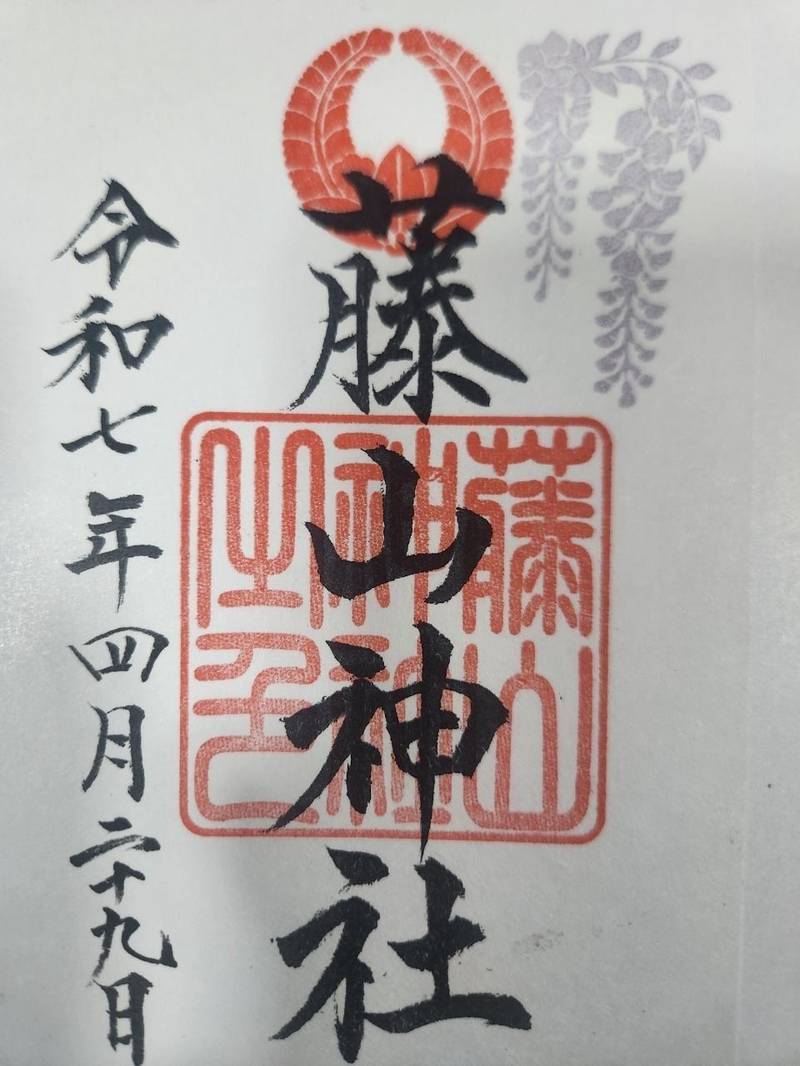 藤山神社
藤山
神社
之印
令和七年四月二十九日